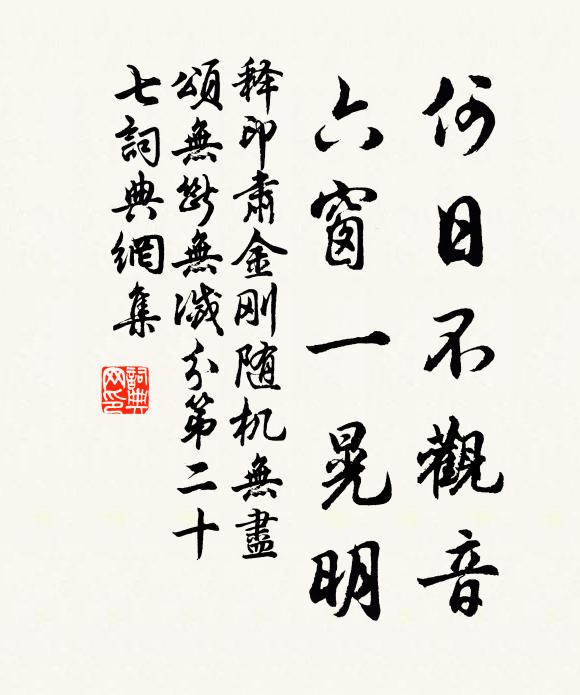 何日不觀音
六窗一晃明
释印肅金刚随机無盡
頌無斷無滅分第二十
七詞典網集
詞典
网印